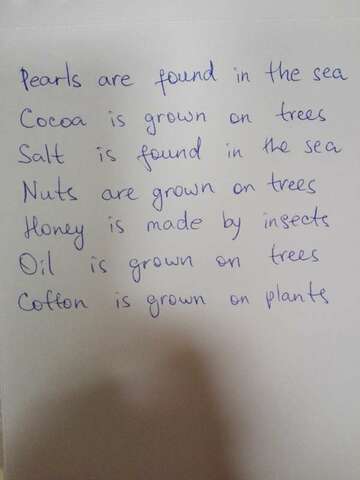 Pearls are found in the sea
Cocoa is grown on trees
Salt is found in the sea
Nuts are grown on trees
Honey is made by insects
Oil is grown on trees
Cotton is grown on plants